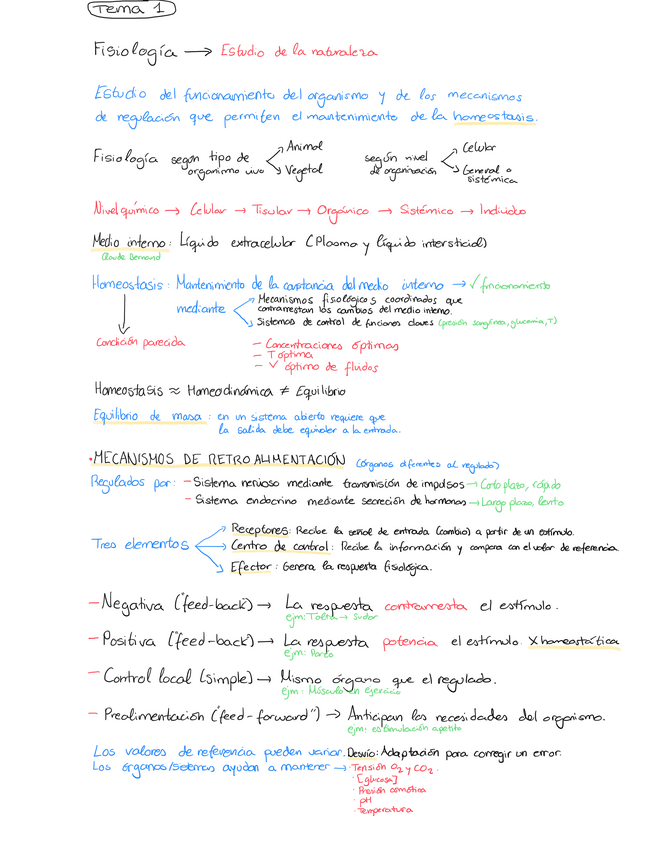 Tema 1
Fisiología → Estudio de la naturaleza
Estudio del funcionamiento del organismo y de los mecanismos
de regulación que permiten el mantenimiento de la homeostasis.
Fisiología según tipo de organismo vivo Animal Vegetal según nivel de organización Celular General o sistémica
Nivel químico → Celular → Tisular → Orgánico → Sistémico → Individuo
Medio interno: Líquido extracelular (Plasma y líquido intersticial)
Claude Bernand
Homeostasis: Mantenimiento de la constancia del medio interno → ✓ funcionamiento
mediante
Mecanismos fisiológicos coordinados que
contrarrestan los cambios del medio interno.
Sistemas de control de funciones claves (presión sangínea, glucemia, T)
Condición parecida
- Concentraciones óptimas
- T óptima
- V óptimo de fluidos
Homeostasis ≈ Homeodinámica ≠ Equilibrio
Equilibrio de masa: en un sistema abierto requiere que
la salida debe equivaler a la entrada.
• MECANISMOS DE RETROALIMENTACIÓN (órganos diferentes al regulado)
Regulados por: - Sistema nervioso mediante transmisión de impulsos → Corto plazo, rápido
- Sistema endocrino mediante secreción de hormonas → Largo plazo, lento
Tres elementos
Receptores: Recibe la señal de entrada (cambio) a partir de un estímulo.
Centro de control: Recibe la información y compara con el valor de referencia.
Efector: Genera la respuesta fisiológica.
- Negativa ("feed-back") → La respuesta contrarresta el estímulo.
ejm: T alta → Sudor
- Positiva ("feed-back") → La respuesta potencia el estímulo. X homeostática
ejm: Parto
- Control local (simple) → Mismo órgano que el regulado.
ejm: Músculo en ejercicio
- Prealimentación ("feed-forward") → Anticipan las necesidades del organismo.
ejm: estimulación apetito
Los valores de referencia pueden variar. Desvío: Adaptación para corregir un error.
Los órganos/sistemas ayudan a mantener → · Tensión O2 y CO2.
· [glucosa]
· Presión osmótica
· pH
· Temperatura